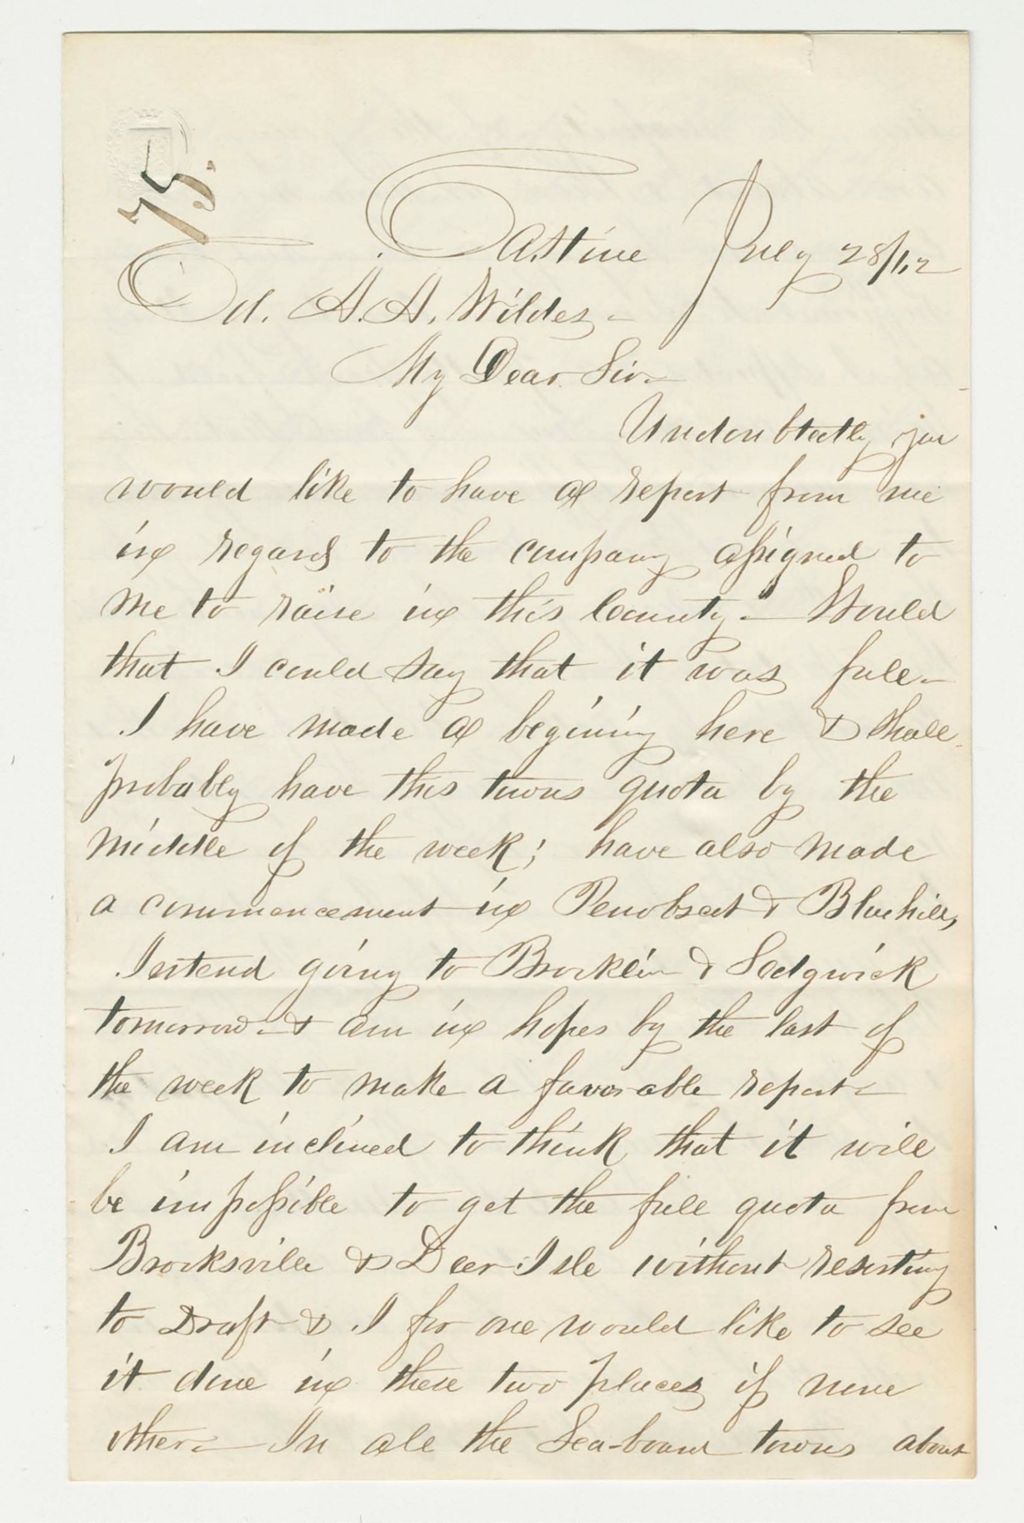 75.
Castine July 28/62
Col. A. A. Wildes,
My Dear Sir
Undoubtedly you
would like to have a report from me
in regard to the company assigned to
me to raise in this County. Would
that I could say that it was full.
I have made a begining here & shall
probably have this towns quota by the
middle of the week; have also made
a commencement in Penobscot & Bluehill,
Intend going to Brooklin & Sedgwick
tomorrow & am in hopes by the last of
the week to make a favorable report
I am inclined to think that it will
be impossible to get the full quota from
Brooksville & Deer Isle without resorting
to Draft & I for one would like to see
it done in these two places if none
other. In all the Sea-board towns about